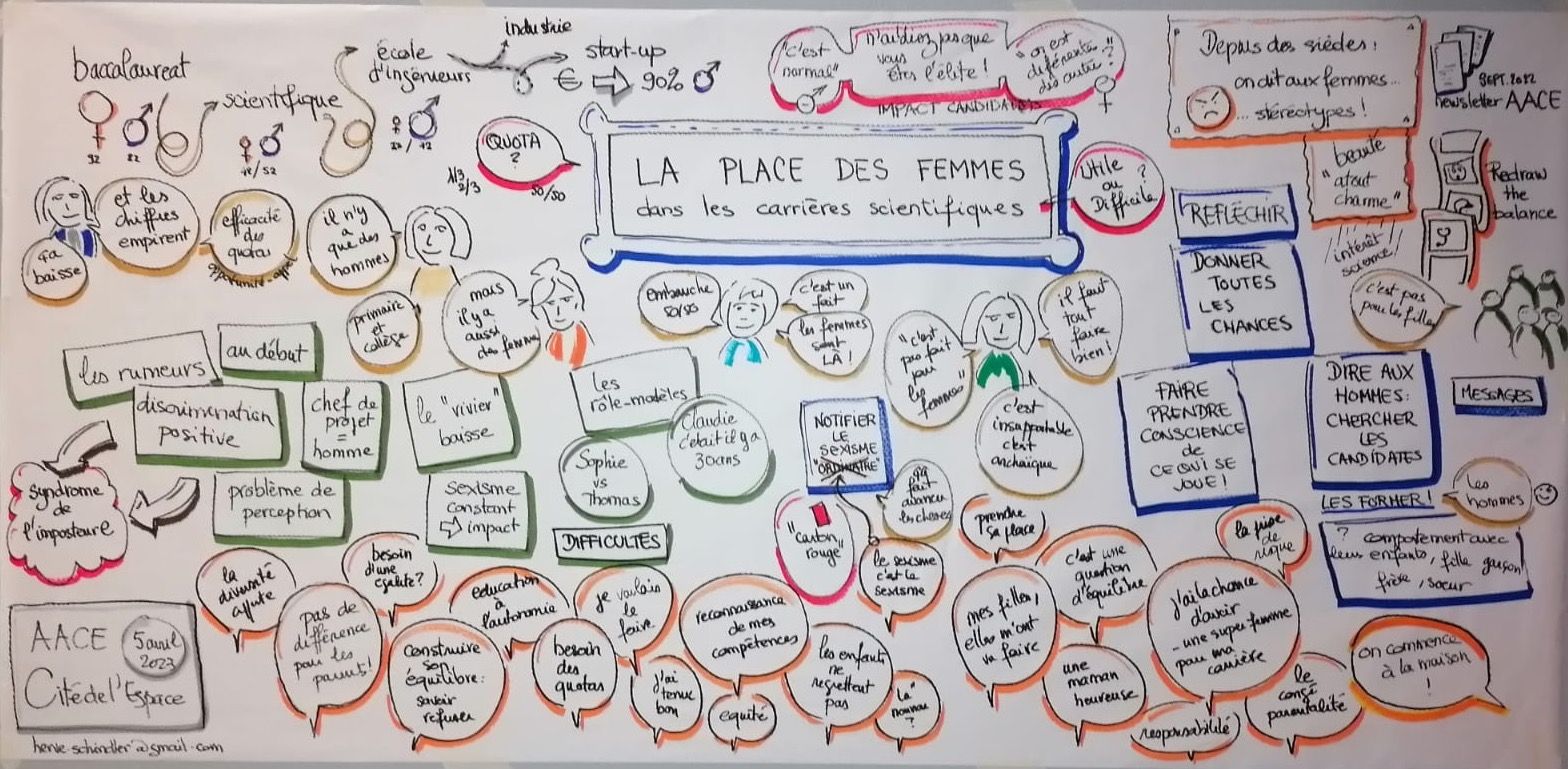 baccalaureat
scientifique
école
d'ingénieurs
industrie
start-up
€
90%
QUOTA
?
1/3
2/3
50/50
"c'est
normal"
n'oubliez pas que
vous
êtes l'élite !
"on est
différentes
des autres"?
IMPACT CANDIDATES
Depuis des siècles :
on dit aux femmes...
... stéréotypes !
SEPT. 2022
newsletter AACE
LA PLACE DES FEMMES
dans les carrières scientifiques
Utile ?
ou
Difficile
REFLÉCHIR
beauté
"atout
charme"
intérêt
science!
Redraw
the
balance
et les
chiffres
empirent
ça
baisse
efficacité
des
quotas
il n'y
a
que des
hommes
primaire
et
collège
mais
il y a
aussi
des femmes
embauche
50/50
c'est un
fait
les femmes
sont
LÀ !
"c'est
pas fait
pour
les
femmes"
il faut
tout
faire
bien !
c'est
insupportable
c'est
archaïque
DONNER
TOUTES
LES
CHANCES
c'est pas
pour les filles
les rumeurs
au début
discrimination
positive
chef de
projet
=
homme
le "vivier"
baisse
les
rôle-modèles
Claudie
c'était il y a
30 ans
Sophie
vs
Thomas
NOTIFIER
LE
SEXISME
"ORDINAIRE"
ça
fait
avancer
les choses
FAIRE
PRENDRE
CONSCIENCE
de
CE QUI SE
JOUE !
DIRE AUX
HOMMES :
CHERCHER
LES
CANDIDATES
MESSAGES
LES FORMER !
les
hommes
syndrome
de
l'imposteure
problème de
perception
SEXISME
CONSTANT
impact
DIFFICULTÉS
"carton
rouge"
le sexisme
c'est le
SEXISME
prendre
sa place
c'est une
question
d'équilibre
la prise
de
risque
? comportement avec
leurs enfants, fille garçon
frère, soeur
la
diversité
ajoute
besoin
d'une
égalité?
pas de
différence
pour les
parents!
education
à
l'autonomie
je voulais
le
faire
construire
son
équilibre :
savoir
refuser
besoin
des
quotas
j'ai
tenu
bon
reconnaissance
de mes
compétences
équité
les enfants
ne
regrettent
pas
"La"
nounou
?
mes filles,
elles m'ont
vu faire
une
maman
heureuse
j'ai la chance
d'avoir
- une super femme
pour ma
carrière
responsabilité
le
congé
parentalité
on commence
à la maison
!
AACE
5 avril
2023
Cité de l'Espace
herve.schindler@gmail.com